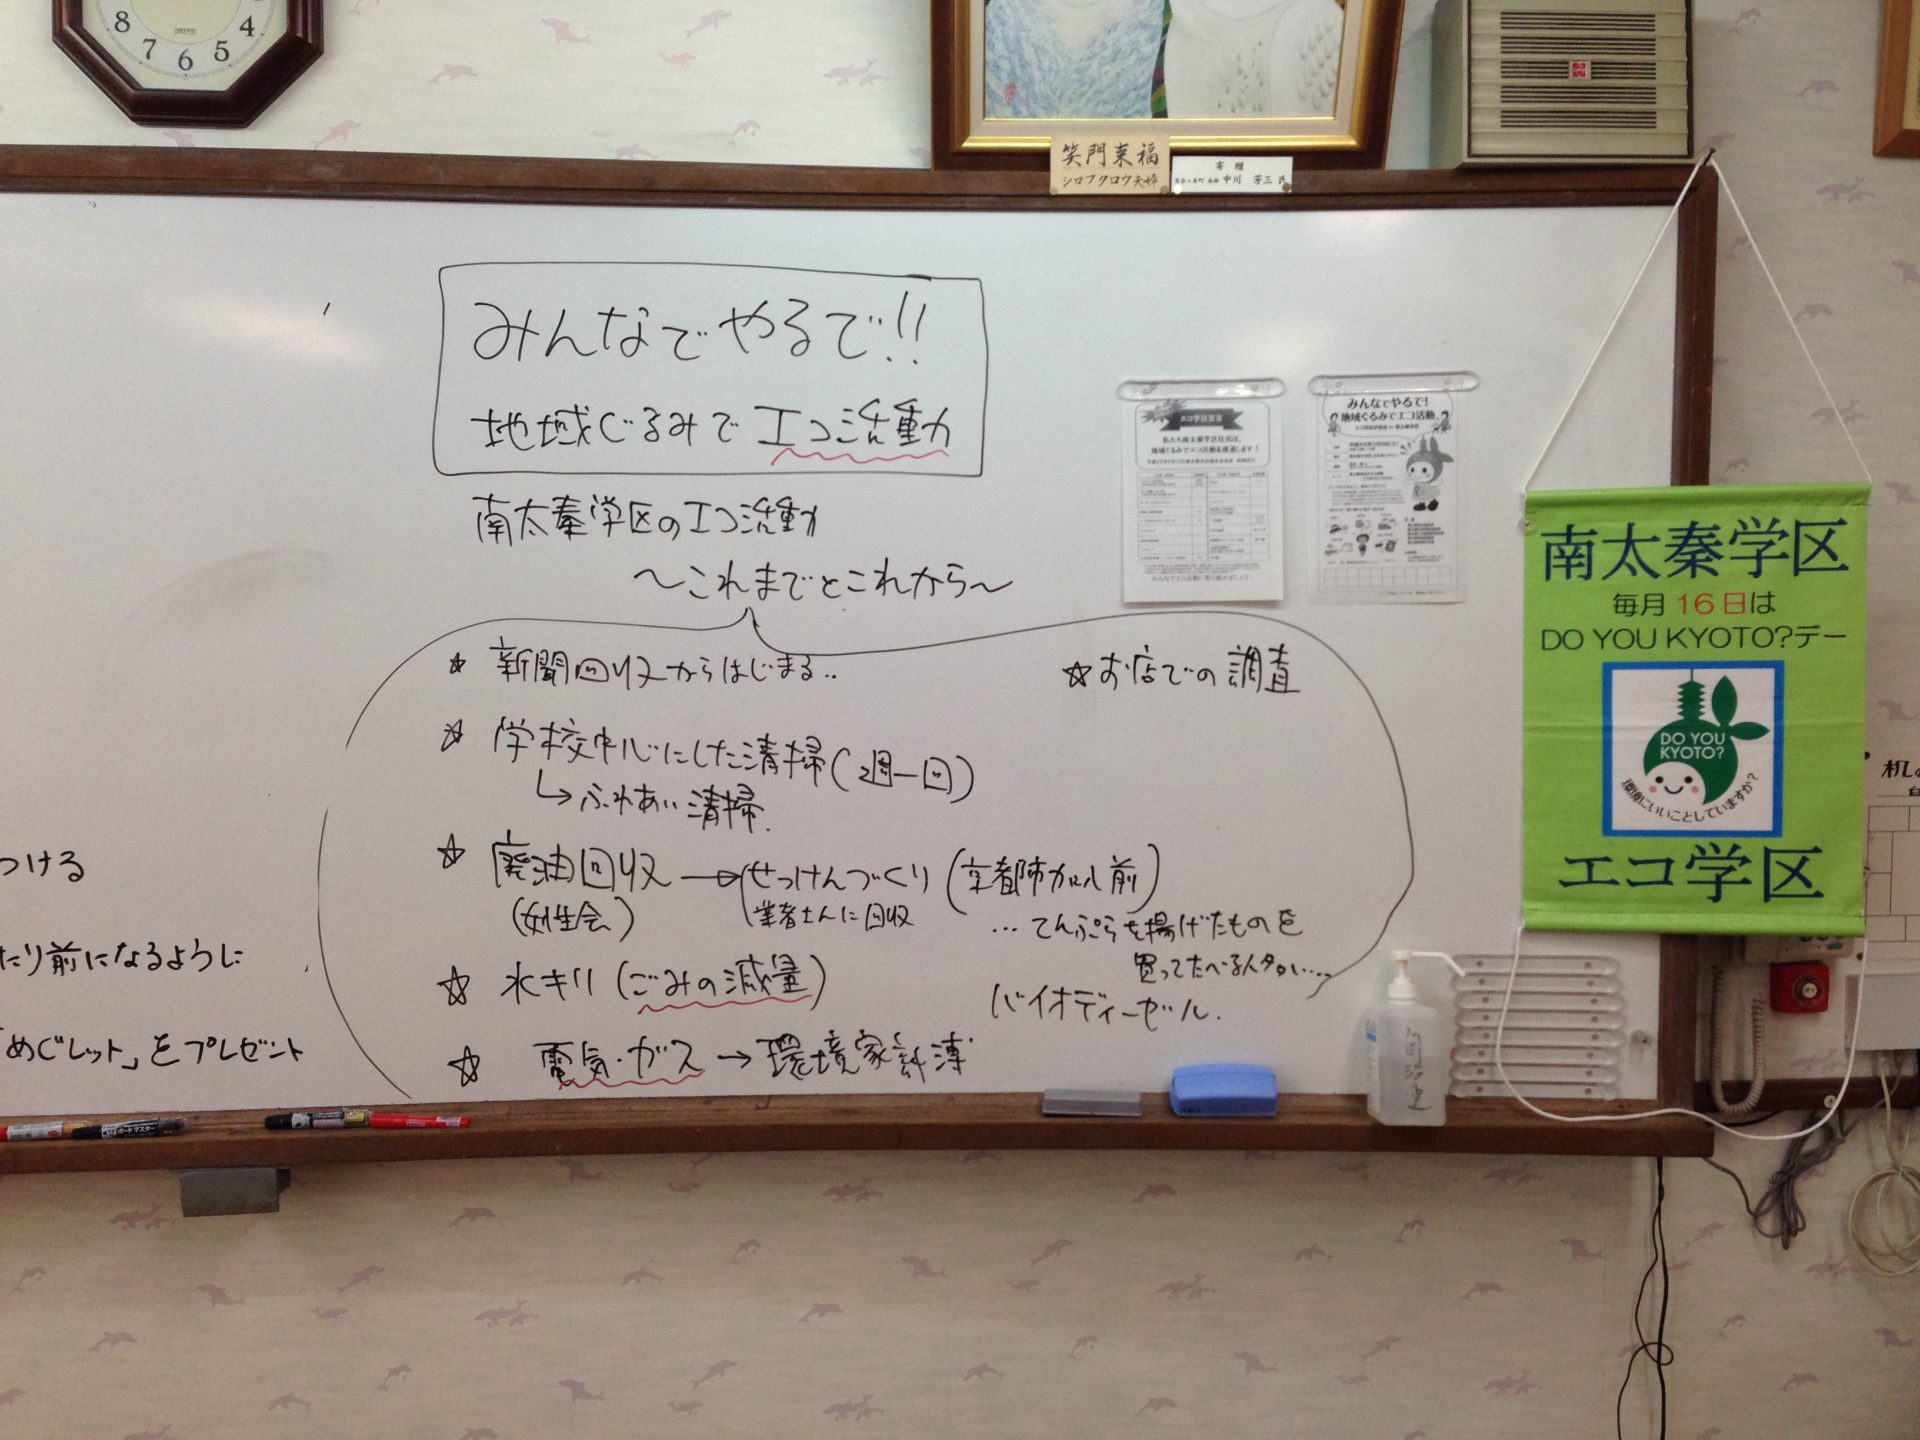 8 7 6 5 4
笑門来福
シロフクロウ夫婦
寄贈
中川 芳三 氏
みんなでやるで!!
地域ぐるみでエコ活動
南太秦学区のエコ活動
〜これまでとこれから〜
☆ 新聞回収からはじまる..
☆ 学校中心にした清掃(週一回)
↳ ふれあい清掃
☆ 廃油回収 → せっけんづくり (京都市加川前)
(女性会) 業者さんに回収
... てんぷらを揚げたものを
買ってたべる人多い....
バイオディーゼル.
☆ 水キリ (ごみの減量)
☆ 電気・ガス → 環境家計簿
☆ お店での調査
つける
たり前になるように
「めぐレット」をプレゼント
エコ学区宣言
私たち南太秦学区住民は、
地域ぐるみでエコ活動を推進します!
みんなでエコ活動に取り組みましょう!
みんなでやるで!
地域ぐるみでエコ活動
南太秦学区
毎月16日は
DO YOU KYOTO?デー
DO YOU
KYOTO?
環境にいいことしていますか?
エコ学区
机の